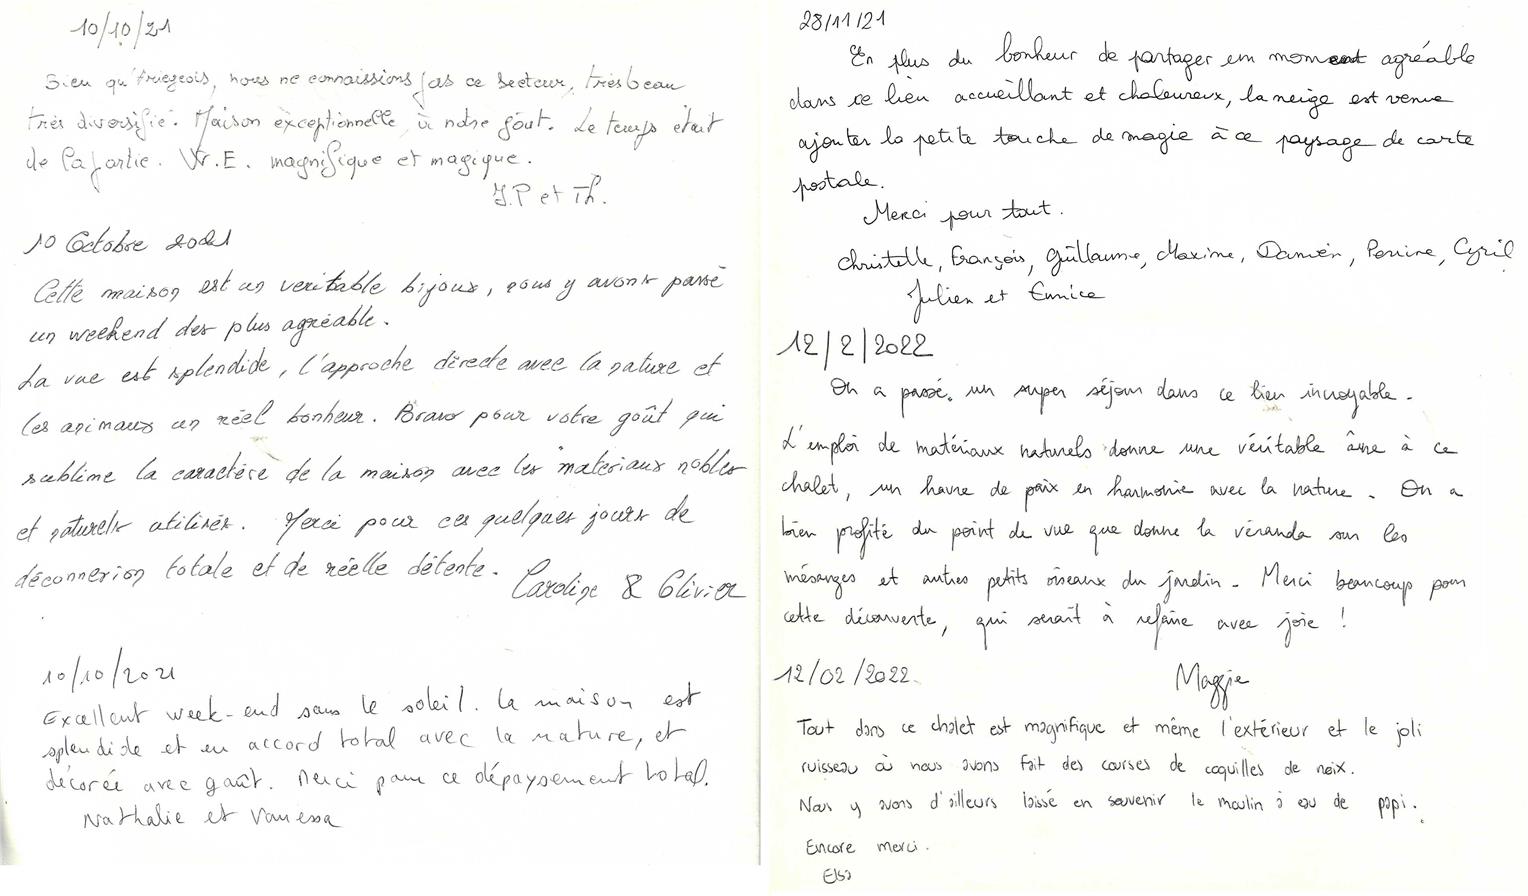 10/10/21
Bien qu'Ariégeois, nous ne connaissions pas ce secteur, très beau
très diversifié. Maison exceptionnelle, à notre goût. Le temps était
de la partie. W.E. magnifique et magique.
J.P et Th.
10 Octobre 2021
Cette maison est un veritable bijoux, nous y avons passé
un weekend des plus agréable.
La vue est splendide, l'approche directe avec la nature et
les animaux un réel bonheur. Bravo pour votre goût qui
sublime la caractère de la maison avec les materiaux nobles
et naturels utilisés. Merci pour ces quelques jours de
déconnexion totale et de réelle détente.
Caroline & Olivier
10/10/2021
Excellent week-end sous le soleil. La maison est
splendide et en accord total avec la nature, et
décorée avec goût. Merci pour ce dépaysement total.
Nathalie et Vanessa
28/11/21
En plus du bonheur de partager un moment agréable
dans ce lieu accueillant et chaleureux, la neige est venue
ajouter la petite touche de magie à ce paysage de carte
postale.
Merci pour tout.
Christelle, François, Guillaume, Maxime, Damien, Perrine, Cyril
Julien et Eunice
12/2/2022
On a passé un super séjour dans ce lieu incroyable.
L'emploi de matériaux naturels donne une véritable âme à ce
chalet, un havre de paix en harmonie avec la nature. On a
bien profité du point de vue que donne la véranda sur les
mésanges et autres petits oiseaux du jardin. Merci beaucoup pour
cette découverte, qui serait à refaire avec joie !
Maggie
12/02/2022
Tout dans ce chalet est magnifique et même l'extérieur et le joli
ruisseau où nous avons fait des courses de coquilles de noix.
Nous y avons d'ailleurs laissé en souvenir le moulin à eau de papi.
Encore merci.
Elsa